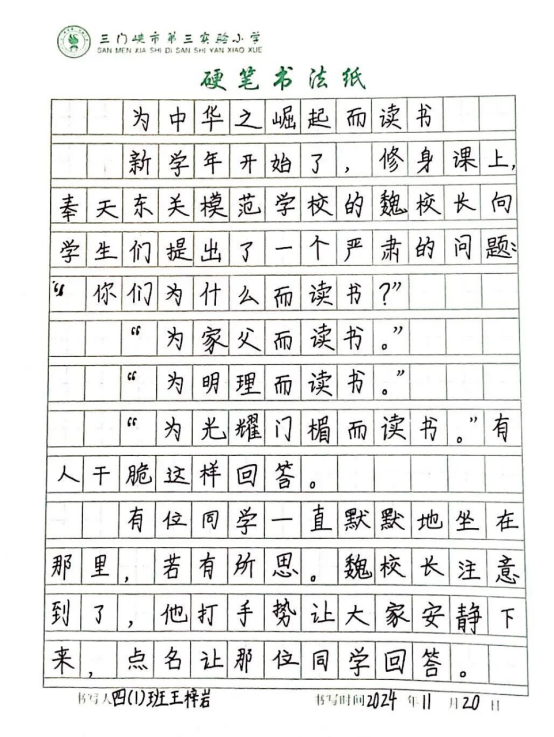 三门峡市第三实验小学
SAN MEN XIA SHI DI SAN SHI YAN XIAO XUE
硬笔书法纸
为中华之崛起而读书
新学年开始了，修身课上，
奉天东关模范学校的魏校长向
学生们提出了一个严肃的问题：
“你们为什么而读书？”
“为家父而读书。”
“为明理而读书。”
“为光耀门楣而读书。”有
人干脆这样回答。
有位同学一直默默地坐在
那里，若有所思。魏校长注意
到了，他打手势让大家安静下
来，点名让那位同学回答。
书写人四(1)班王梓岩 书写时间2024年11月20日